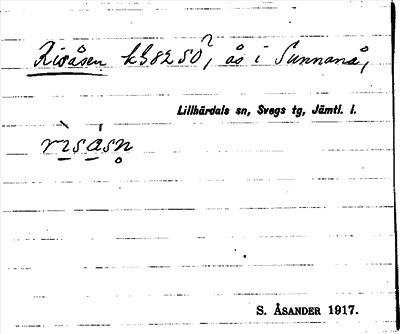 Risåsen k382 50?, ås i Sunnanå,
Lillhärdals sn, Svegs tg, Jämtl. l.
rìsásn̥
S. ÅSANDER 1917.